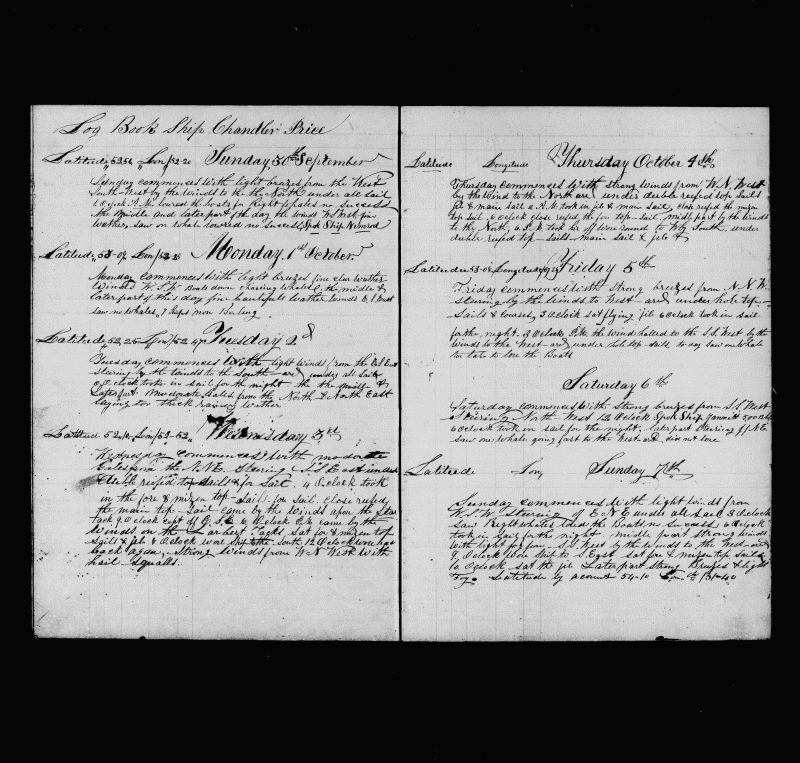 Log Book Ship Chandler Price
Latitude, 5256 Lon/5220 Sunday 30th September
Sunday commences with light breezes from the West
South-West by the winds to the the North under all sail
10 o'clock A.M. lowered the boats for Right Whales no success
the Middle and later part of the day the winds W S West fine
weather, saw on whale lowered no success, Spok Ship Nimrod
Latitude, 53-07. Lon/52 25 Monday 1st October
Monday commences with light breezes fine clear wather
winds W.S.W Boats down chasing whales the middle &
later part of this day fine beautiful wather winds
saw no whales, 7 Ships
Latitude, 52,25 Lon/52 47 Tuesday 2d
Tuesday commences with light winds from the
stering by the winds to the South-ard under all sail
o,clock took in sail for the night the the middle &
Later part Moderate Gales from the North & North East
laying too thick rainey wather
Latitude 52,10 Lon/52-52, Wednesday 3rd
Wednesday commences with moderate
Gales from the N.N.E. Stering S.S. East under
duble reefed top sails & for sail. 4 Oclock took
in the fore & mizen top-sail for sail. close reefed
the main top-sail came by the winds apon the Star
tack 9 Oclock kept off Oclock P.M. came by the
winds on the Larbert Tacks sat for & mizen top
sails & jib Oclock wor Ship the South 12 Oclock wore
back again, Strong winds from W N West with
hail squalls.
Latitude Longitude Thursday October 4th
Thursday commences with strong winds from W.N.West
by the Wind to the North ard under duble reefed top Sails
jib & main sail A.M. took in jib & main sail, close reefed the mizen
top sail, 6 oclock close reefed the for top-sail, midl part by the winds
to the North, 6 P.M. took her off wore round to the South, under
duble reefed top-sails main sail & jib &
Latitude 53-05 Longitude Friday 5th
Friday commences with strong breezes from N.N.W.
stering by the winds to West-ard under hole top-
Sails & courses, 3 Oclock sat flying jib 6 oclock took in sail
for the night. Oclock P.M. the wind halled to the S.S. West by the
winds to the West-ard under hole top-sails to day saw on whale
too late to lore the Boats
Saturday 6th
Saturday commences with strong breezes from S.S. West
Steering North-West 12 Oclock Spok Ship
6 oclock took in sail for the night, later part Steering
saw one whale going fast to the West ard did not lore
Latitude Lon, Sunday 7th
Sunday commences with light winds from
W.S.W. Stering of E N E under all sail 3 Oclock
Saw Right whales lored the Boats no Success 6 Oclock
took in Sail for the night, midle part strong winds
with light S.S. West by the winds to the West-ard
9 Oclock wore ship to S East sat fore & mizen top sails
10 Oclock sat the jib Later part strong Breezes & light
Fog Latitude by acount 54-10 Lon